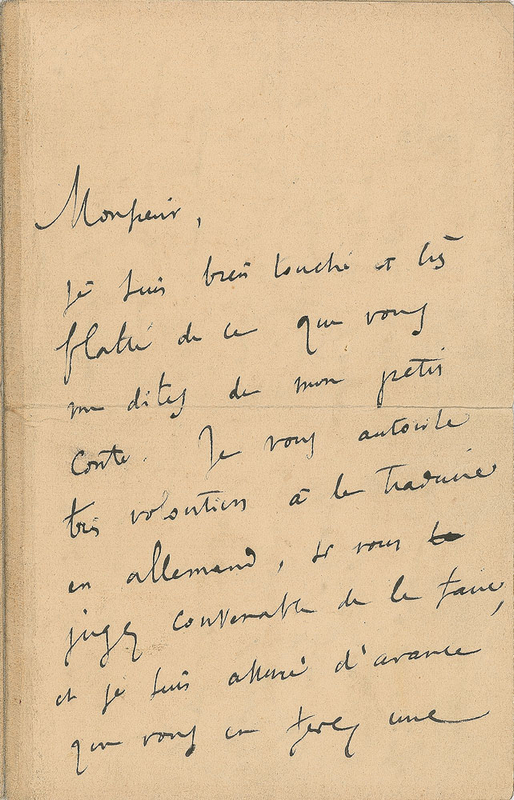 Monsieur,
je suis bien touché et très
flatté de ce que vous
me dites de mon petit
conte. Je vous autorise
très volontiers à le traduire
en allemand, si vous le
jugez convenable de le faire,
et je suis assuré d'avance
que vous en ferez une